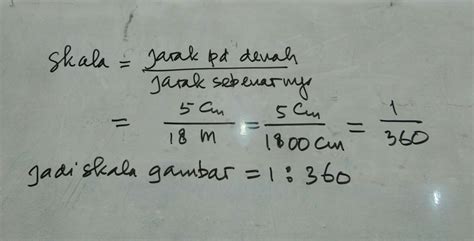 Skala = Jarak pd denah / Jarak sebenarnya
= 5 Cm / 18 M = 5 Cm / 1800 Cm = 1 / 360
Jadi skala gambar = 1 : 360